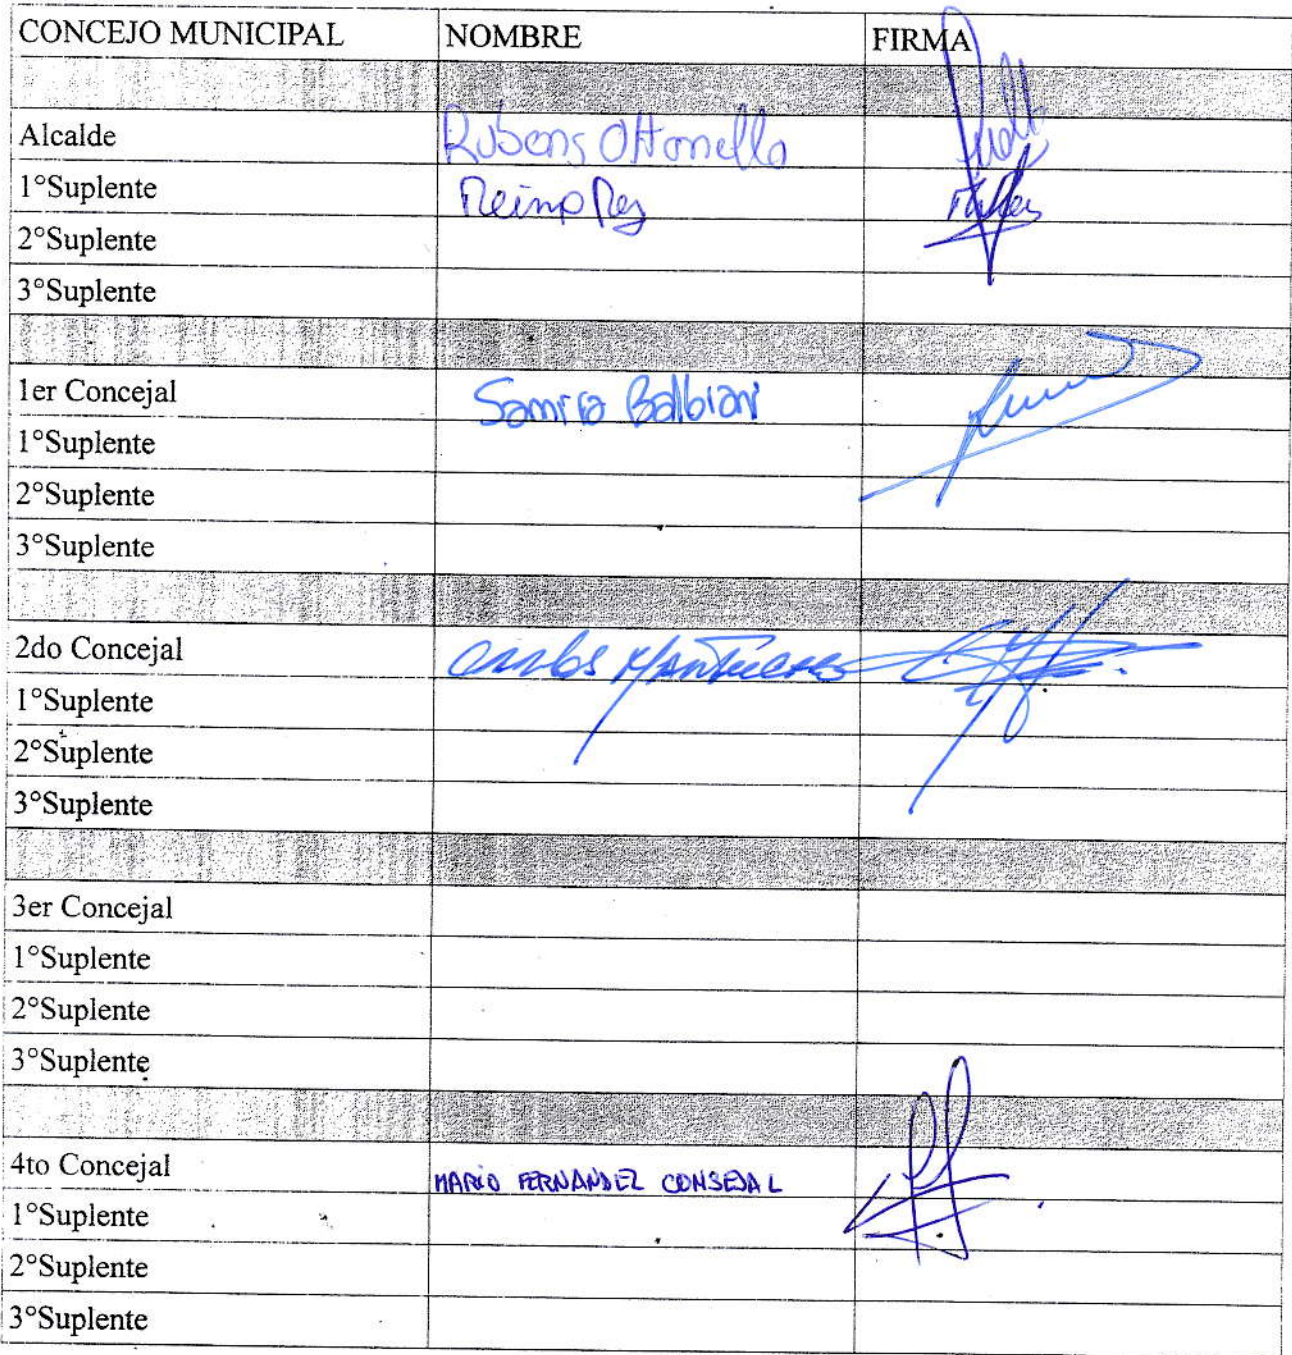 CONCEJO MUNICIPAL NOMBRE FIRMA
Alcalde Rubens Ottonello
1°Suplente Rey
2°Suplente
3°Suplente
1er Concejal Samira Balbiani
1°Suplente
2°Suplente
3°Suplente
2do Concejal Carlos
1°Suplente
2°Suplente
3°Suplente
3er Concejal
1°Suplente
2°Suplente
3°Suplente
4to Concejal MARIO FERNANDEZ CONSEJAL
1°Suplente
2°Suplente
3°Suplente